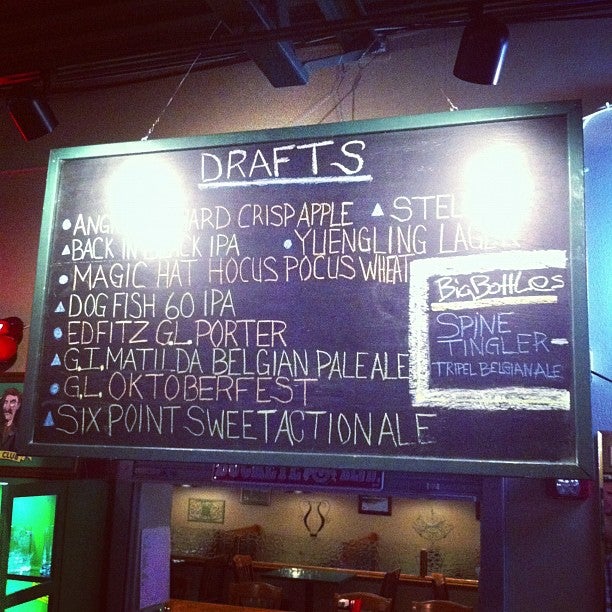 DRAFTS
CRISP APPLE
BACK IPA
YUENGLING LAGER
MAGIC HAT HOCUS POCUS WHEAT
DOG FISH 60 IPA
EDFITZ G.L. PORTER
G.I. MATILDA BELGIAN PALE ALE
G.L. OKTOBERFEST
SIXPOINT SWEET ACTION ALE
Big Bottles
SPINE
TINGLER-
TRIPEL BELGIAN ALE
CLUB